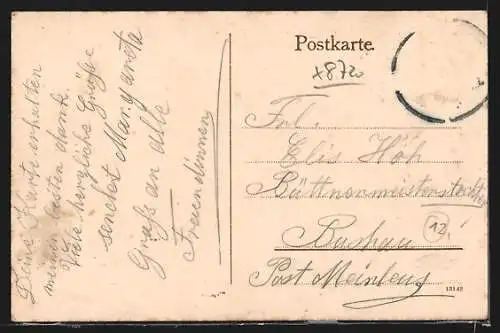 Postkarte.
+8720
Deine Karte erhalten
meinen besten Dank.
Viele herzliche Grüße
sendet Margareta
Gruß an alle
Freundinnen
Frl.
Elis Höh
Büttnermeisterstochter
12
Buchau
Post Meinleus
13142